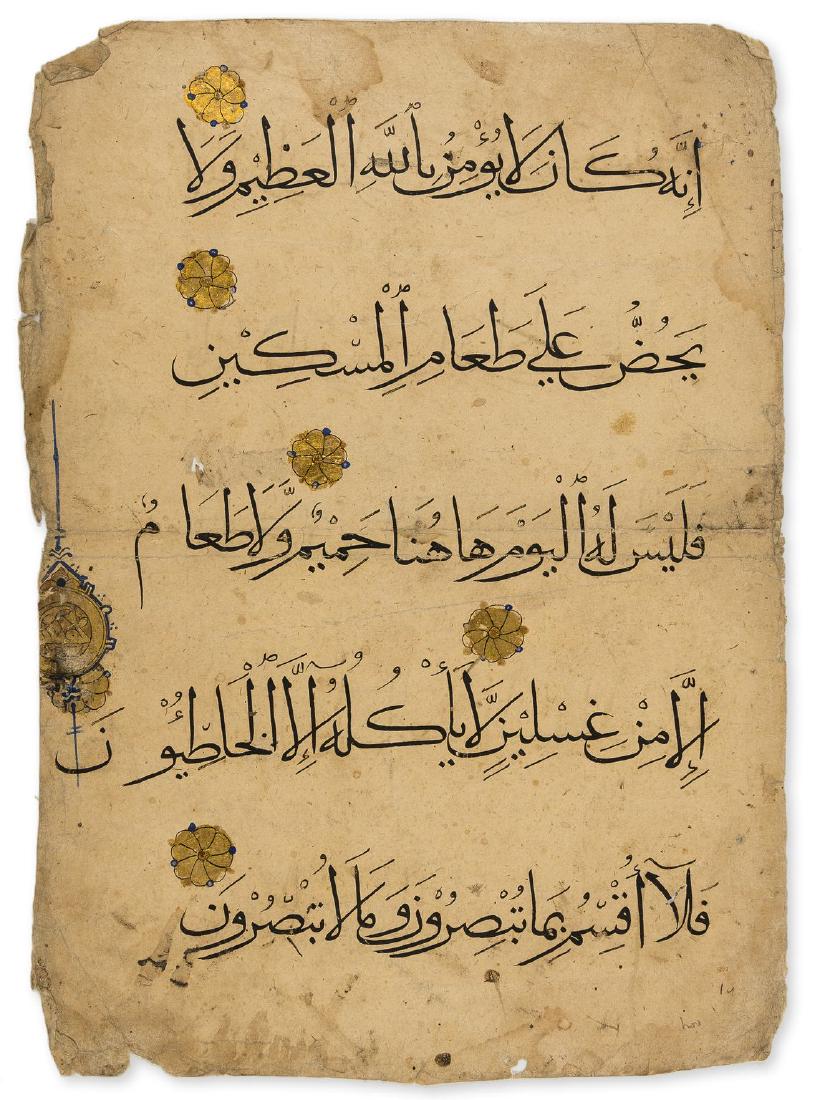 إِنَّهُ كَانَ لَا يُؤْمِنُ بِٱللَّهِ ٱلْعَظِيْمِ وَلَا
يَحُضُّ عَلَي طَعَامِ ٱلْمِسْكِيْنِ
فَلَيْسَ لَهُ ٱلْيَوْمَ هَاهُنَا حَمِيْمٌ وَّلَا طَعَامٌ
إِلَّا مِنْ غِسْلِيْنٍ لَّا يَأْكُلُهُ إِلَّا ٱلْخَاطِئُوْنَ
فَلَآ أُقْسِمُ بِمَا تُبْصِرُوْنَ وَمَا لَا تُبْصِرُوْنَ